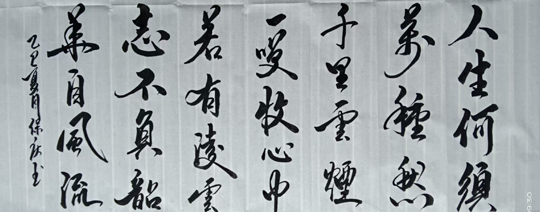 人生何須
萬種愁
千里雲煙
一嘆收心中
若有凌雲
志不負韶
華自風流
乙巳夏月保